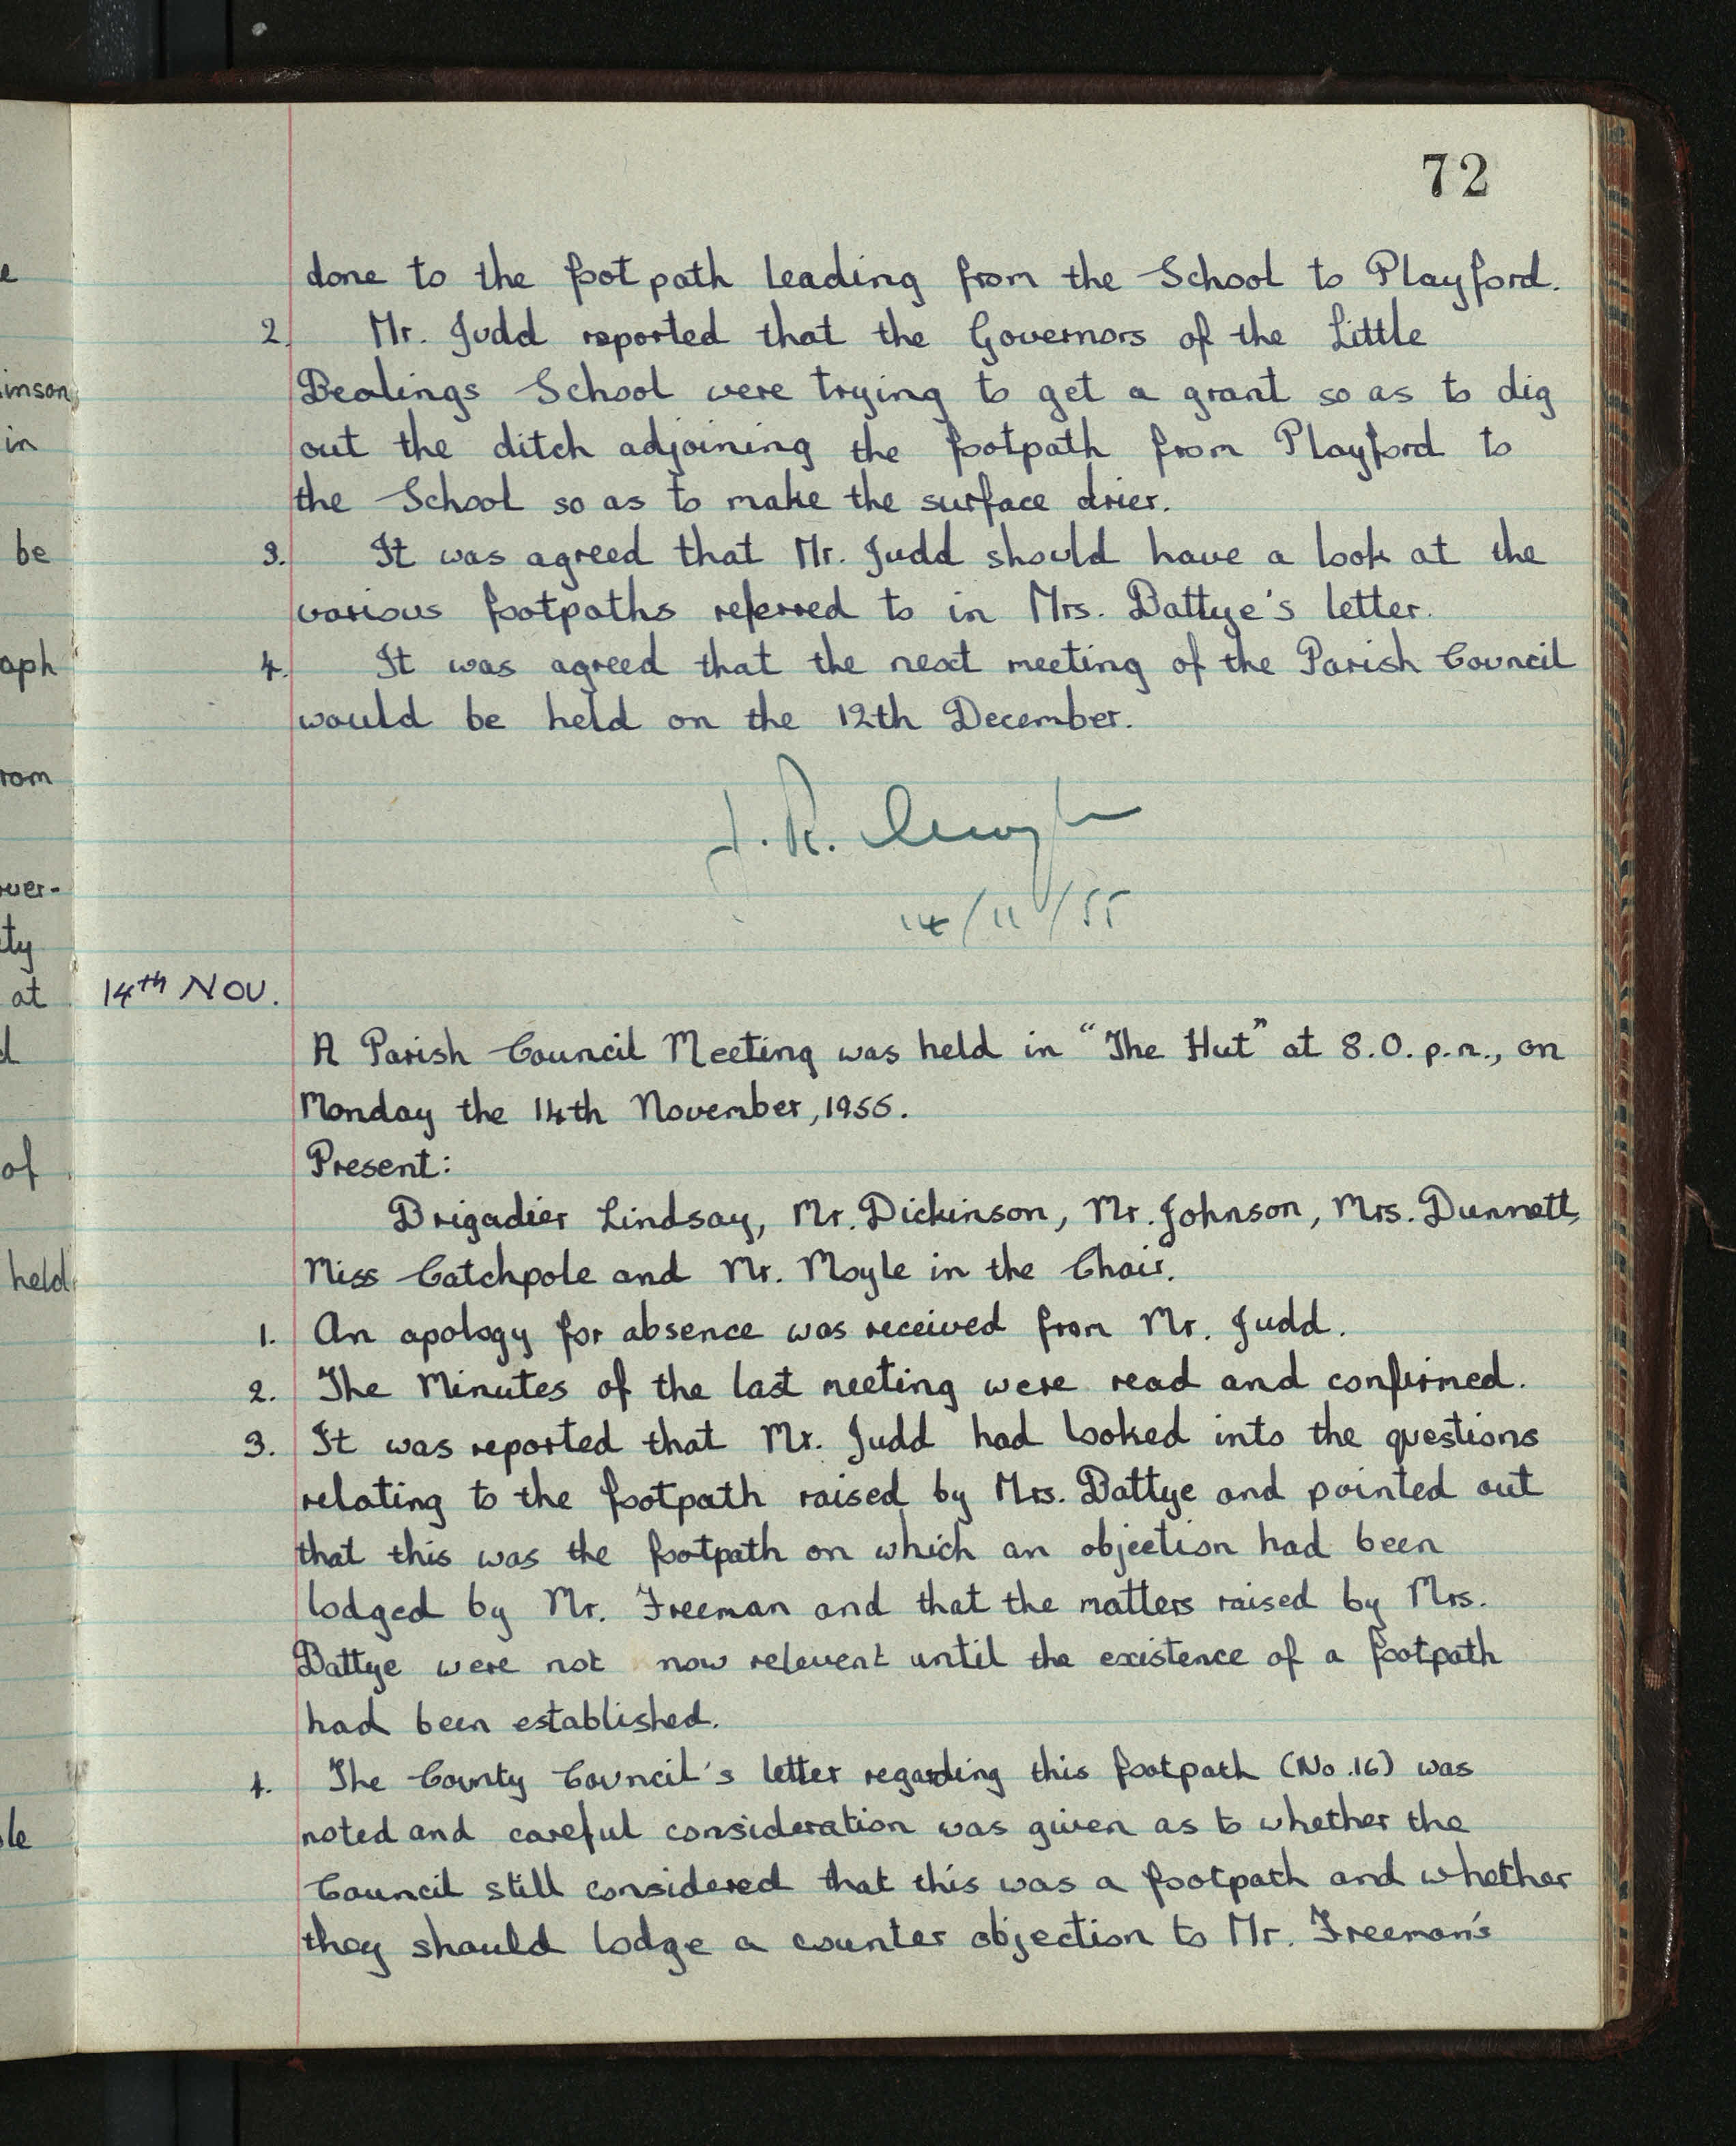 72
done to the foot path leading from the School to Playford.
2. Mr. Judd reported that the Governors of the Little
Bealings School were trying to get a grant so as to dig
out the ditch adjoining the footpath from Playford to
the School so as to make the surface drier.
3. It was agreed that Mr. Judd should have a look at the
various footpaths referred to in Mrs. Battye's letter.
4. It was agreed that the next meeting of the Parish Council
would be held on the 12th December.
14/11/55
14th NOV.
A Parish Council Meeting was held in "The Hut" at 8.0. p.m., on
Monday the 14th November, 1955.
Present:
Brigadier Lindsay, Mr. Dickinson, Mr. Johnson, Mrs. Dunnett,
Miss Catchpole and Mr. Moyle in the Chair.
1. An apology for absence was received from Mr. Judd.
2. The Minutes of the last meeting were read and confirmed.
3. It was reported that Mr. Judd had looked into the questions
relating to the footpath raised by Mrs. Battye and pointed out
that this was the footpath on which an objection had been
lodged by Mr. Freeman and that the matters raised by Mrs.
Battye were not now relevent until the existence of a footpath
had been established.
4. The County Council's letter regarding this footpath (No.16) was
noted and careful consideration was given as to whether the
Council still considered that this was a footpath and whether
they should lodge a counter objection to Mr. Freeman's